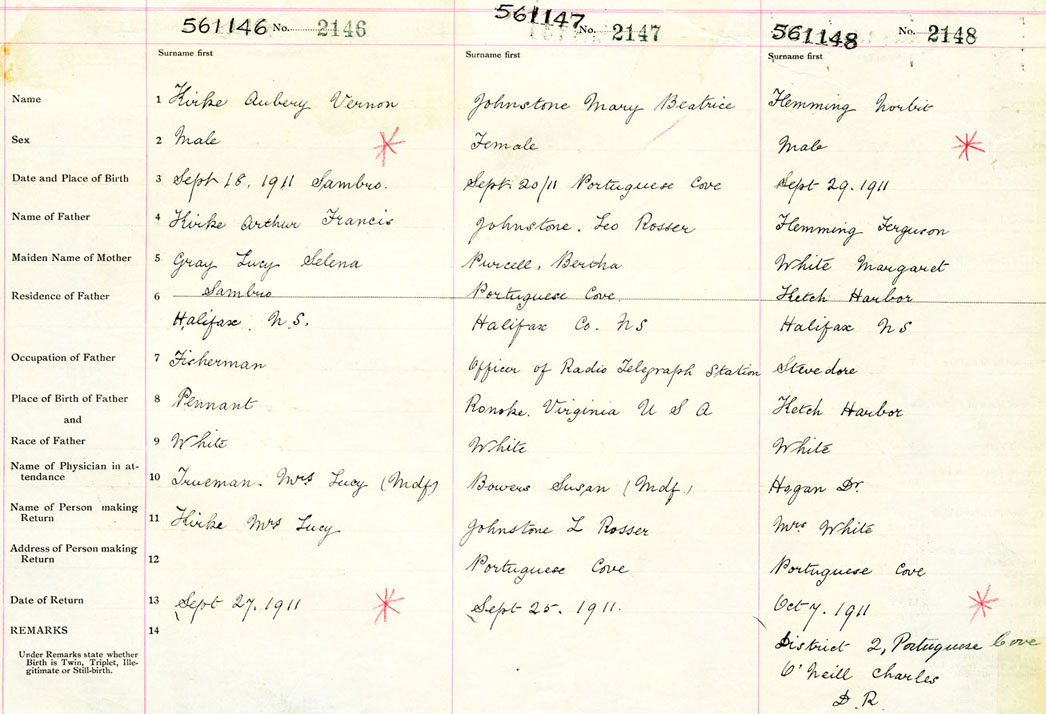 561146 No. 2146
561147 No. 2147
561148 No. 2148
Surname first
Surname first
Surname first
Name 1 Kirke Aubery Vernon
Johnstone Mary Beatrice
Hemming Norbit
Sex 2 Male
Female
Male
Date and Place of Birth 3 Sept 18, 1911 Sambro.
Sept. 20/11 Portuguese Cove
Sept 29. 1911
Name of Father 4 Kirke Arthur Francis
Johnstone. Leo Rosser
Hemming Ferguson
Maiden Name of Mother 5 Gray Lucy Selena
Purcell, Bertha
White Margaret
Residence of Father 6 Sambro
Portuguese Cove
Ketch Harbor
Halifax. N.S.
Halifax Co. NS
Halifax NS
Occupation of Father 7 Fisherman
Officer of Radio Telegraph Station
Stevedore
Place of Birth of Father 8 Pennant
Ronoke. Virginia U S A
Ketch Harbor
and
Race of Father 9 White
White
White
Name of Physician in at-
tendance 10 Trueman. Mrs Lucy (Mdf)
Bowers Susan (Mdf.)
Hogan Dr.
Name of Person making
Return 11 Kirke Mrs Lucy
Johnstone L Rosser
Mrs White
Address of Person making
Return 12
Portuguese Cove
Portuguese Cove
Date of Return 13 Sept 27. 1911
Sept 25. 1911.
Oct 7. 1911
REMARKS 14
Under Remarks state whether
Birth is Twin, Triplet, Ille-
gitimate or Still-birth.
District 2, Portuguese Cove
O'Neill Charles
D.R.